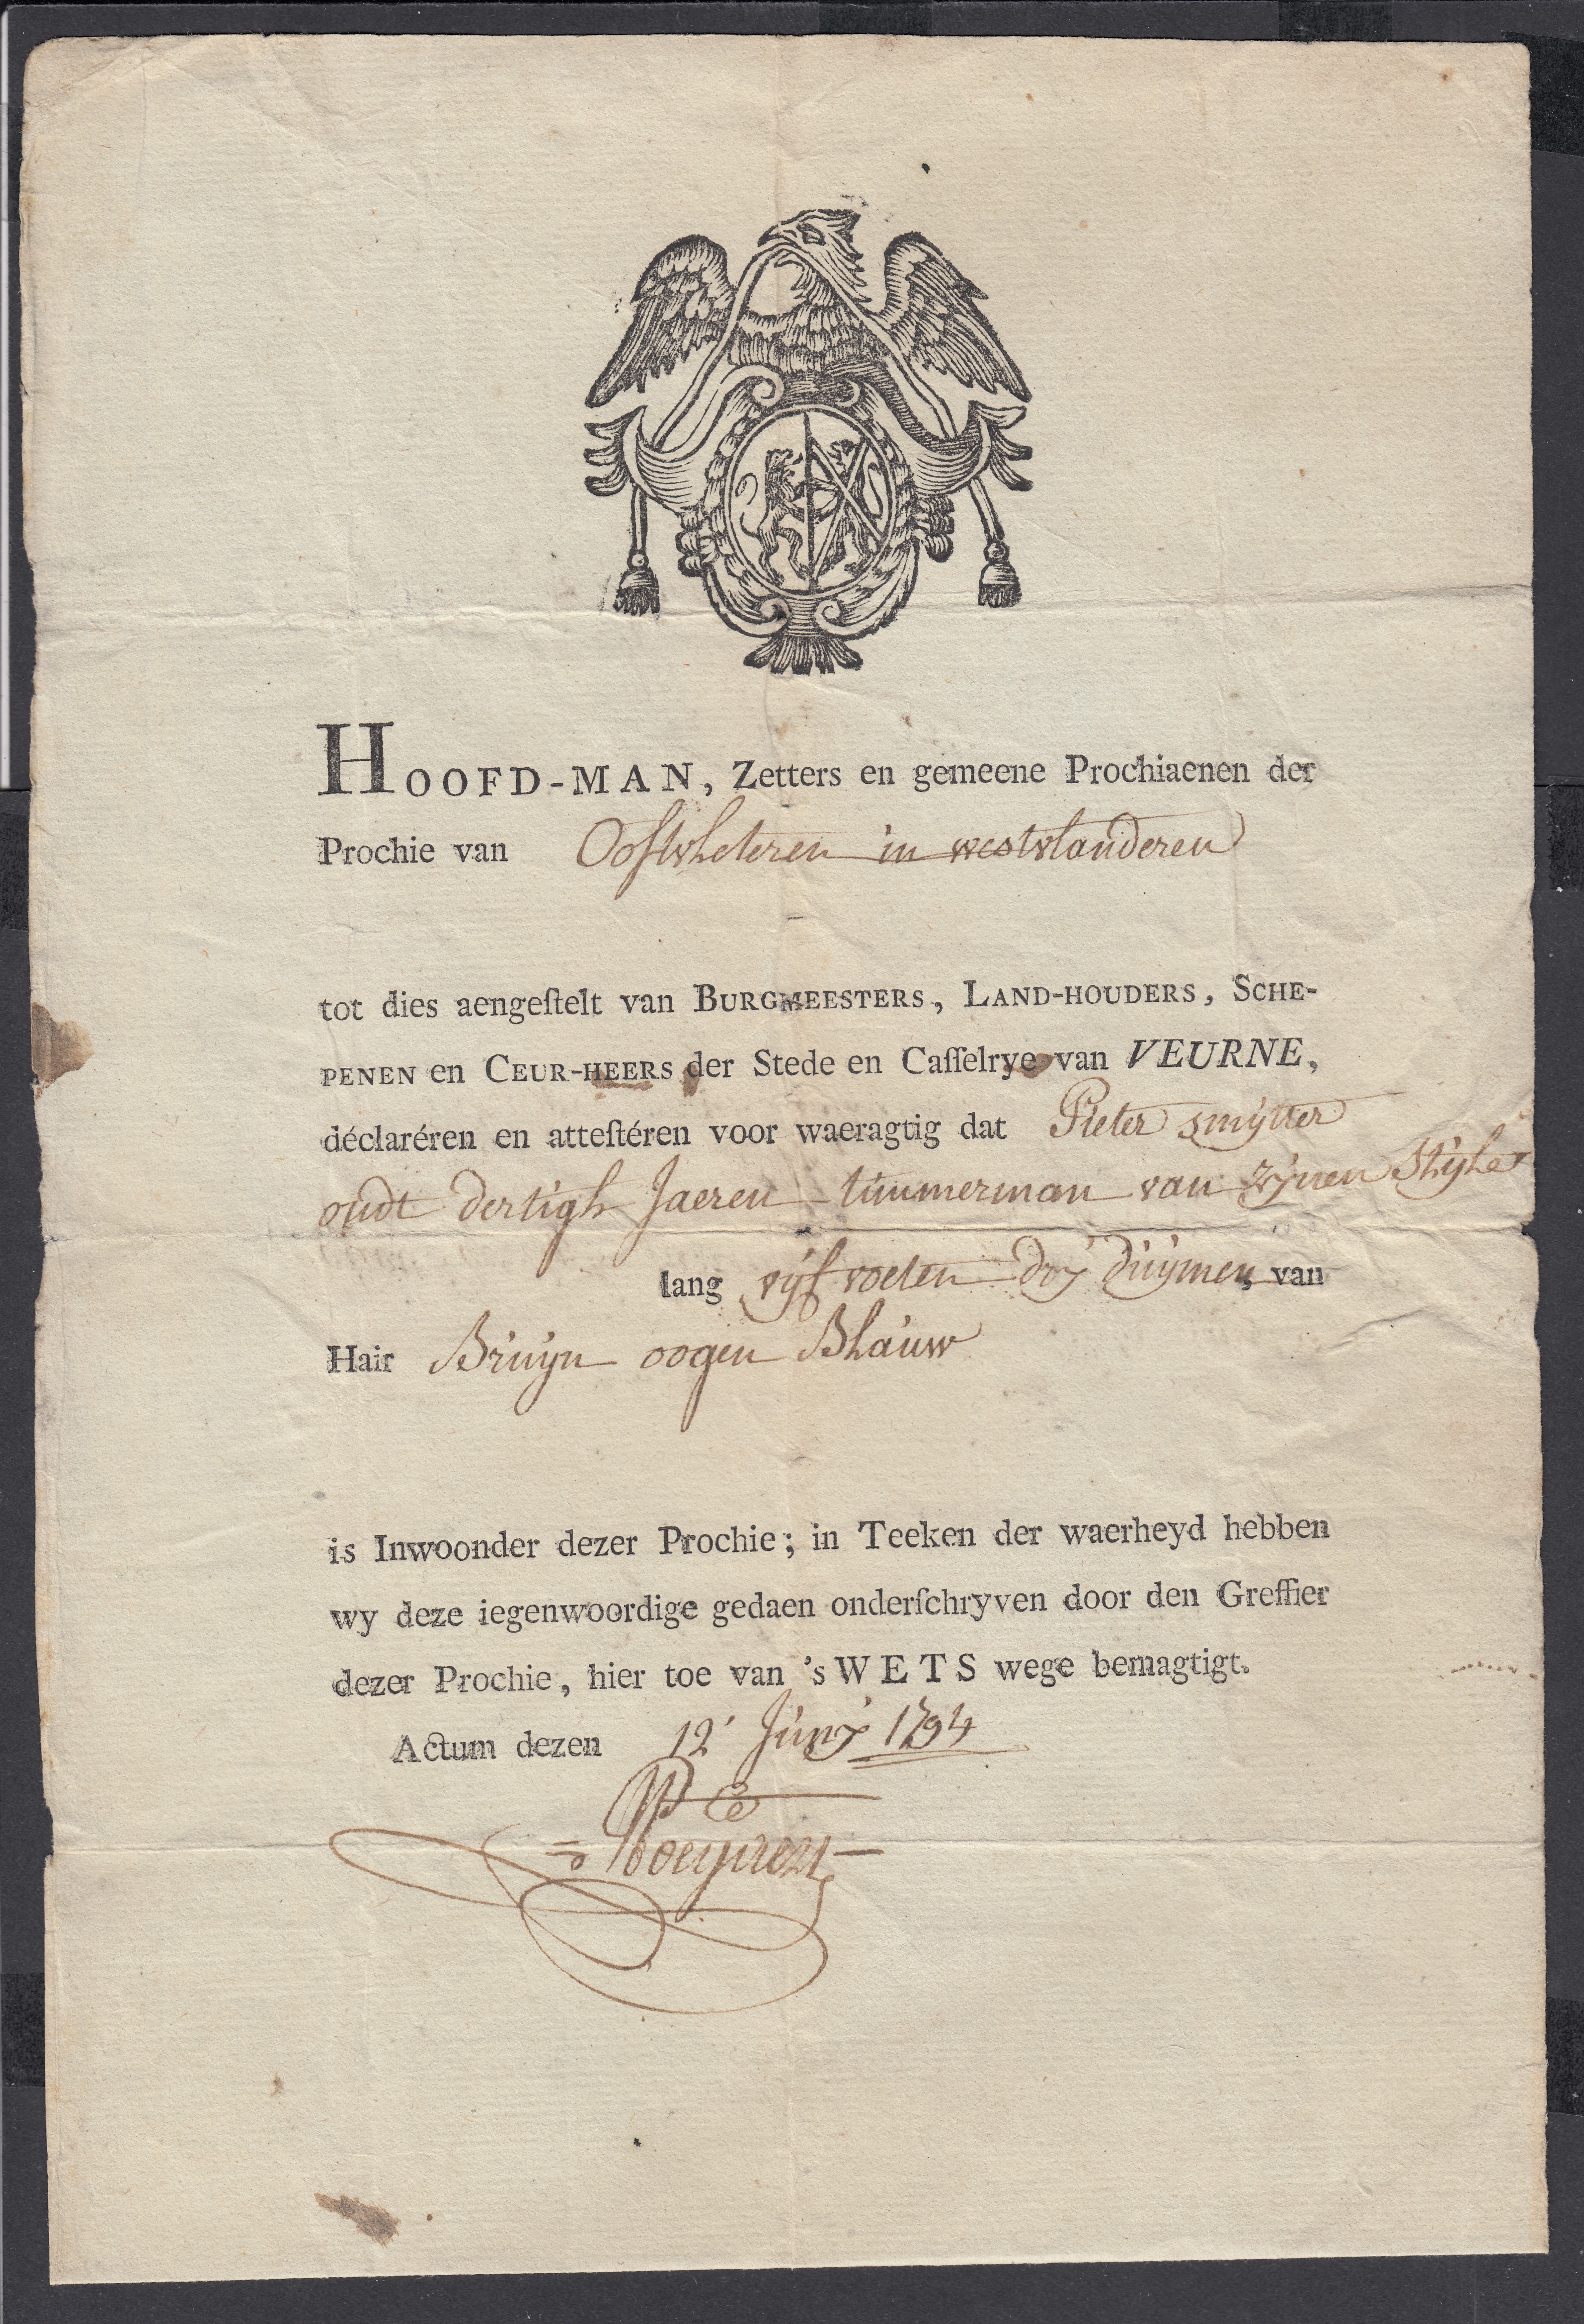 HOOFD-MAN, Zetters en gemeene Prochiaenen der
Prochie van Oostvleteren in westvlanderen
tot dies aengeſtelt van BURGMEESTERS, LAND-HOUDERS, SCHE-
PENEN en CEUR-HEERS der Stede en Caſſelrye van VEURNE,
déclaréren en atteſtéren voor waeragtig dat Pieter smytter
oudt dertigh Jaeren timmerman van zynen Stijle
lang vyf voeten dry duymen, van
Hair Bruyn oogen Blauw
is Inwoonder dezer Prochie; in Teeken der waerheyd hebben
wy deze iegenwoordige gedaen onderſchryven door den Greffier
dezer Prochie, hier toe van 's WETS wege bemagtigt.
Actum dezen 12 Juny 1794